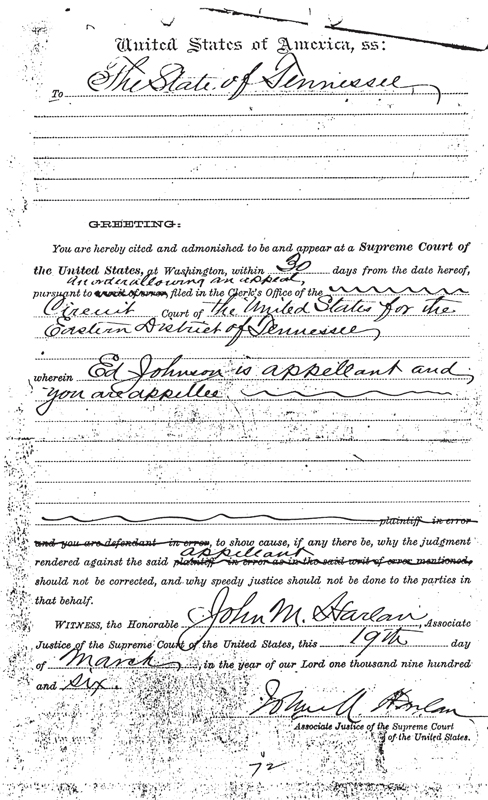 United States of America, ss:
To The State of Tennessee
GREETING:
You are hereby cited and admonished to be and appear at a Supreme Court of
the United States, at Washington, within 30 days from the date hereof,
an order allowing an appeal,
pursuant to a writ of error filed in the Clerk's Office of the
Circuit Court of the United States for the
Eastern District of Tennessee
wherein Ed Johnson is appellant and
you are appellee
plaintiff in error
and you are defendant in error, to show cause, if any there be, why the judgment
appellant
rendered against the said plaintiff in error as in the said writ of error mentioned,
should not be corrected, and why speedy justice should not be done to the parties in
that behalf.
WITNESS, the Honorable John M. Harlan, Associate
Justice of the Supreme Court of the United States, this 19th day
of March, in the year of our Lord one thousand nine hundred
and six.
John M Harlan
Associate Justice of the Supreme Court
of the United States.
72